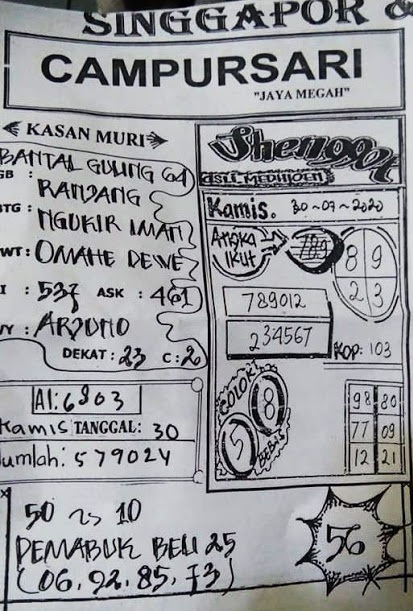 SINGGAPOR &
CAMPURSARI
"JAYA MEGAH"
KASAN MURI
BANTAL GULING 61
GB :
RANJANG
BTG :
NGUKIR IMAN
WT : OMAHE DEWE
I : 537 ASK : 461
WY : ARJUNO
DEKAT : 23 C : 20
AI: 6803
Kamis TANGGAL: 30
Jumlah: 579024
Shenggot
ASLI MEDIUOEN
Kamis. 30-07-2020
Angka
IKUT
789
8 9
2 3
789012
234567
KOP: 103
COLOK
8
5
BEBAS
98 80
77 09
12 21
50 ~> 10
PEMABUK BELI 25
(06, 92, 85, 73)
56